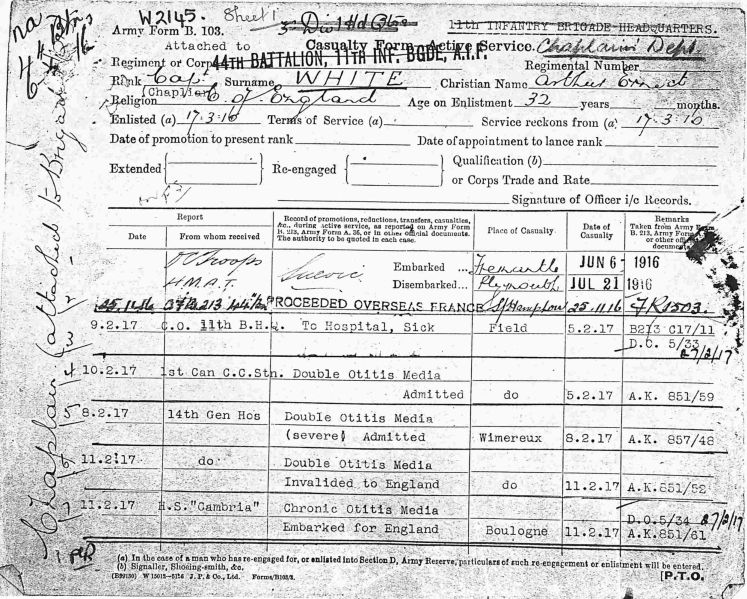 W2145. Sheet 1
11th INFANTRY BRIGADE HEADQUARTERS.
Army Form B. 103.
Attached to Casualty Form—Active Service. Chaplains Dept.
Regiment or Corps 44th BATTALION, 11th INF. BGDE, A.I.F. Regimental Number
Rank Capt Surname WHITE Christian Name Arthur Ernest
(Chaplain)
Religion C. of England Age on Enlistment 32 years months.
Enlisted (a) 17.3.16 Terms of Service (a) Service reckons from (a) 17.3.16
Date of promotion to present rank Date of appointment to lance rank
Extended Re-engaged Qualification (b)
or Corps Trade and Rate
Signature of Officer i/c Records.
Report Record of promotions, reductions, transfers, casualties, Place of Casualty Date of Remarks
&c., during active service, as reported on Army Form Casualty Taken from Army Form
Date From whom received B. 213, Army Form A. 36, or in other official documents. B. 213, Army Form A.
The authority to be quoted in each case. or other official
documents
OC Troops Embarked ... Fremantle JUN 6 - 1916
H.M.A.T. Suevic Disembarked... Plymouth JUL 21 1916
25.11.16 PROCEEDED OVERSEAS FRANCE S/Hampton 25.11.16 FR1503.
9.2.17 C.O. 11th B.H.Q. To Hospital, Sick Field 5.2.17 B213 C17/11
D.C. 5/33
27/2/17
10.2.17 1st Can C.C.Stn. Double Otitis Media
Admitted do 5.2.17 A.K. 851/59
8.2.17 14th Gen Hos Double Otitis Media
(severe) Admitted Wimereux 8.2.17 A.K. 857/48
11.2.17 do. Double Otitis Media
Invalided to England do 11.2.17 A.K.851/52
11.2.17 H.S."Cambria" Chronic Otitis Media
D.O.5/34 27/2/17
Embarked for England Boulogne 11.2.17 A.K.851/61
(a) In the case of a man who has re-engaged for, or enlisted into Section D, Army Reserve, particulars of such re-engagement or enlistment will be entered.
(b) Signaller, Shoeing-smith, &c.
J. P. & Co., Ltd. Forms/B103/2. [P.T.O.
Chaplain (attached to Brigade